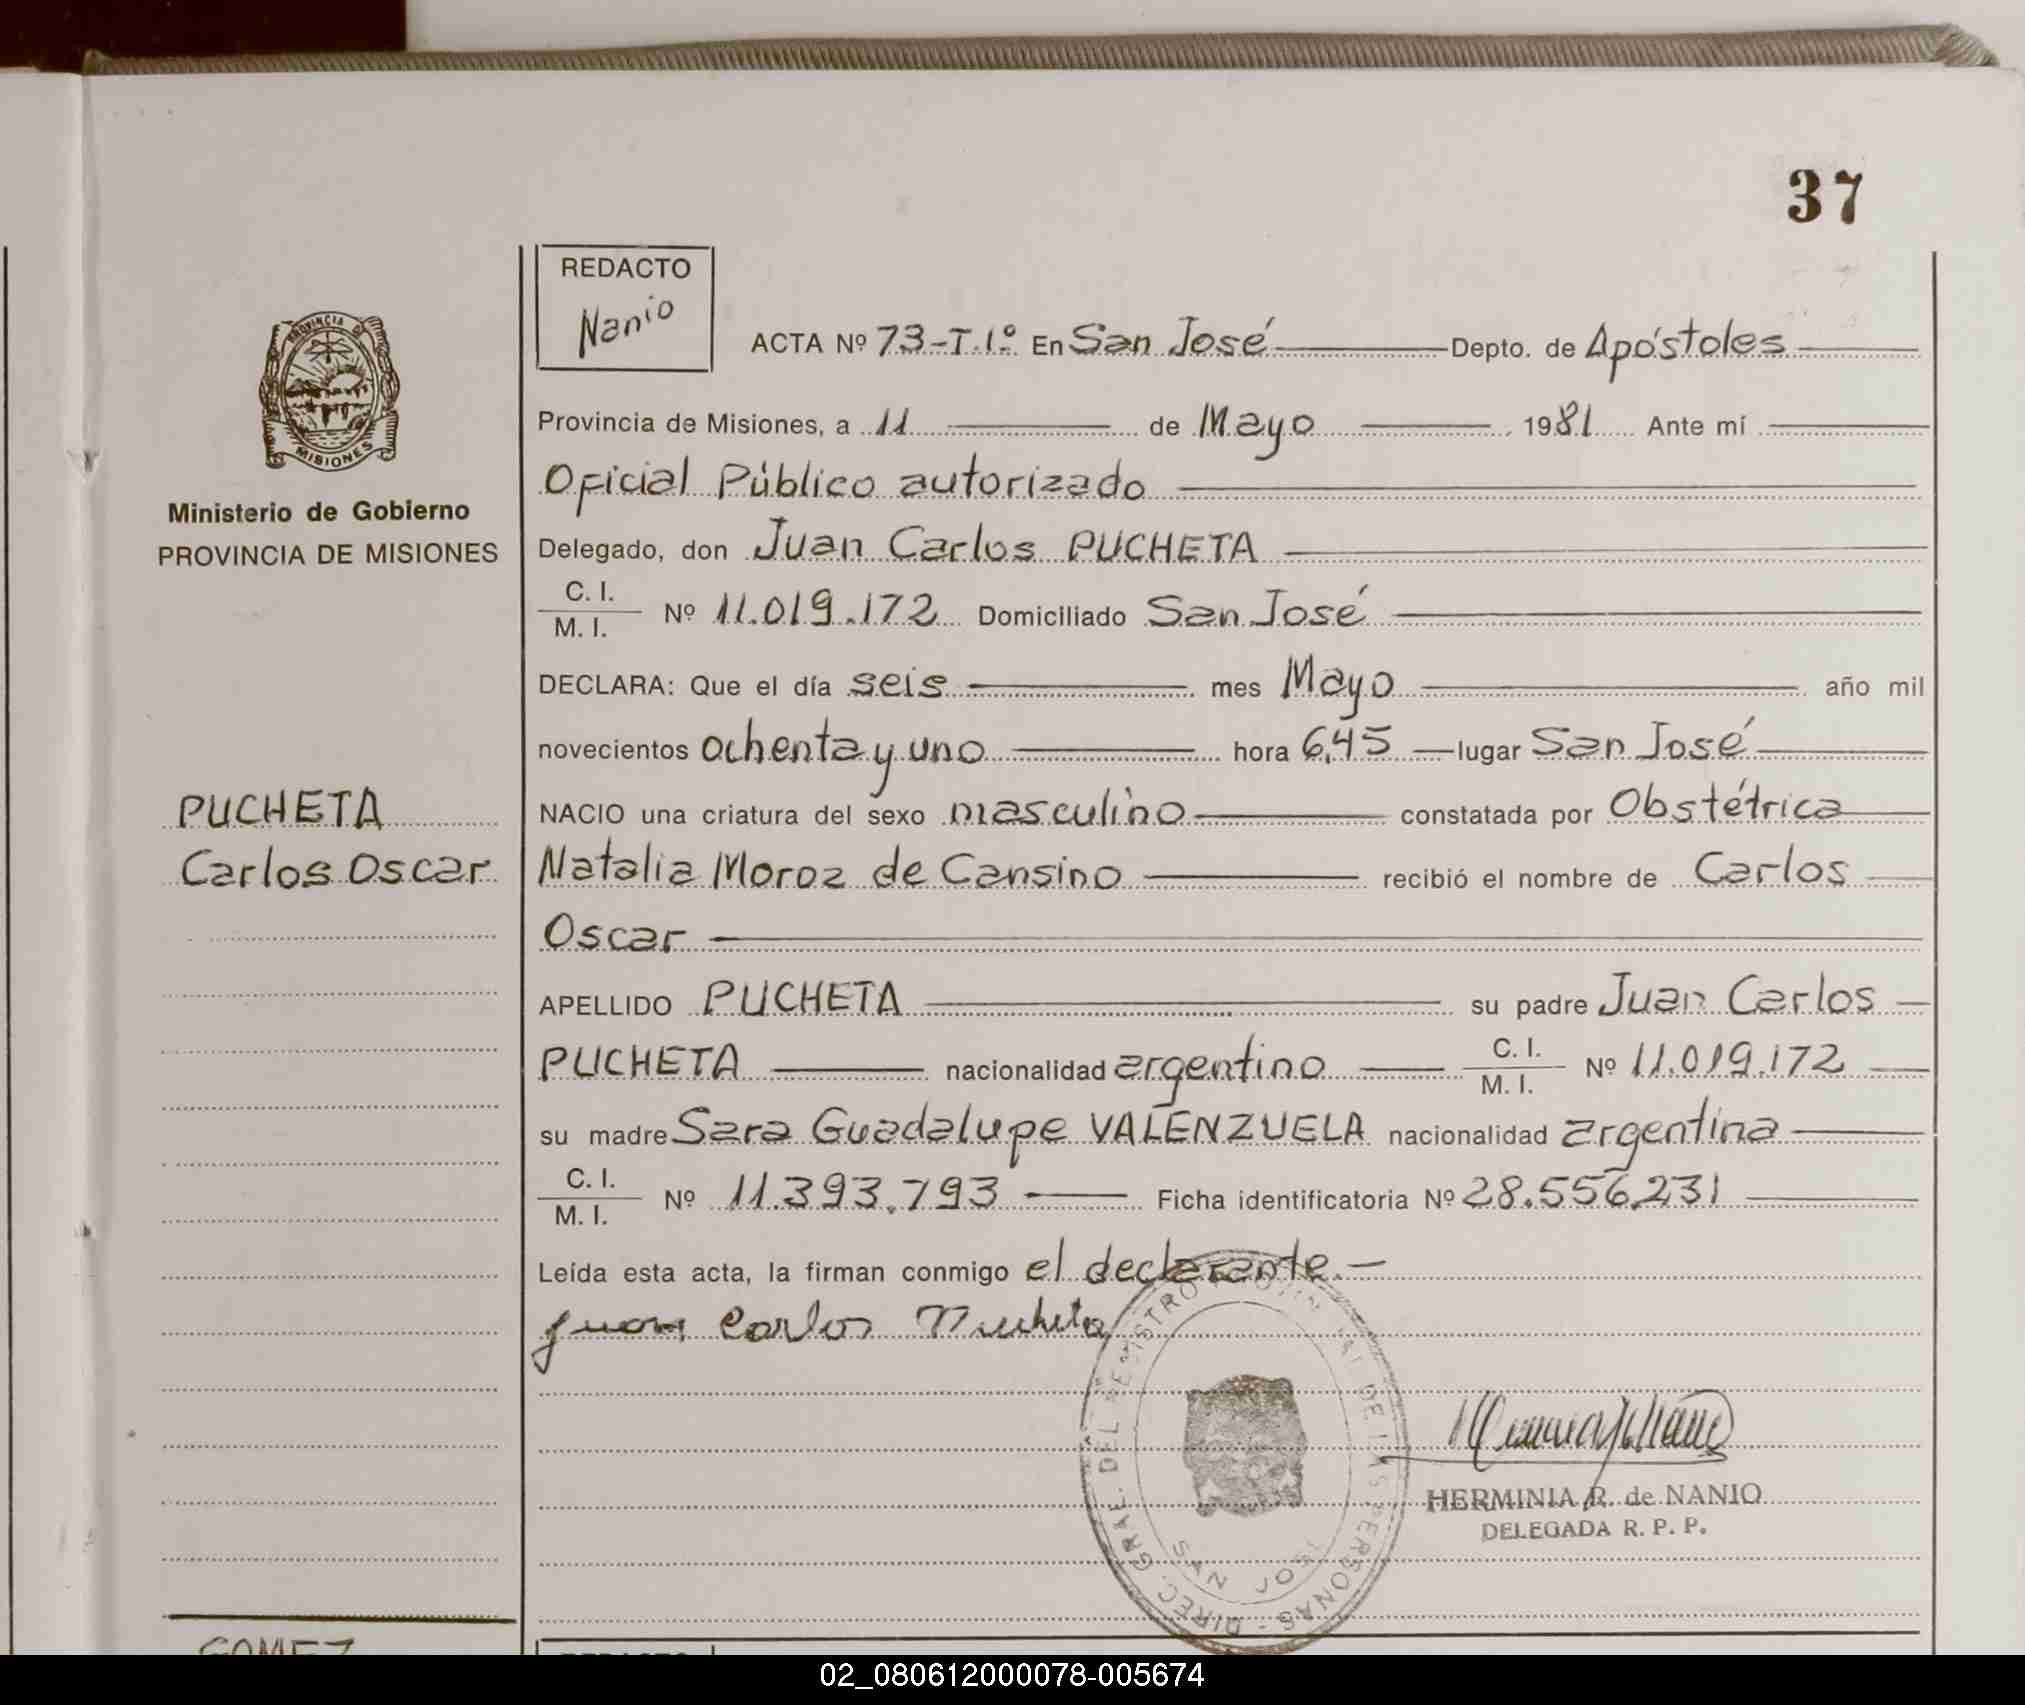 37
PROVINCIA DE
MISIONES
Ministerio de Gobierno
PROVINCIA DE MISIONES
PUCHETA
Carlos Oscar
REDACTO
Nanio
ACTA Nº 73-T.1º En San José Depto. de Apóstoles
Provincia de Misiones, a 11 de Mayo 1981 Ante mí
Oficial Público autorizado
Delegado, don Juan Carlos PUCHETA
C. I.
M. I. Nº 11.019.172 Domiciliado San José
DECLARA: Que el día seis mes Mayo año mil
novecientos ochenta y uno hora 6,45 lugar San José
NACIO una criatura del sexo masculino constatada por Obstétrica
Natalia Moroz de Cansino recibió el nombre de Carlos
Oscar
APELLIDO PUCHETA su padre Juan Carlos
PUCHETA nacionalidad argentino C. I. M. I. Nº 11.019.172
su madre Sara Guadalupe VALENZUELA nacionalidad argentina
C. I.
M. I. Nº 11.393.793 Ficha identificatoria Nº 28.556.231
Leída esta acta, la firman conmigo el declarante.-
Juan Carlos Pucheta
DIREC. GRAL. DEL REGISTRO PROVINCIAL DE LAS PERSONAS -
SAN JOSE
HERMINIA R. de NANIO
DELEGADA R. P. P.
GOMEZ
REDACTO
02_080612000078-005674